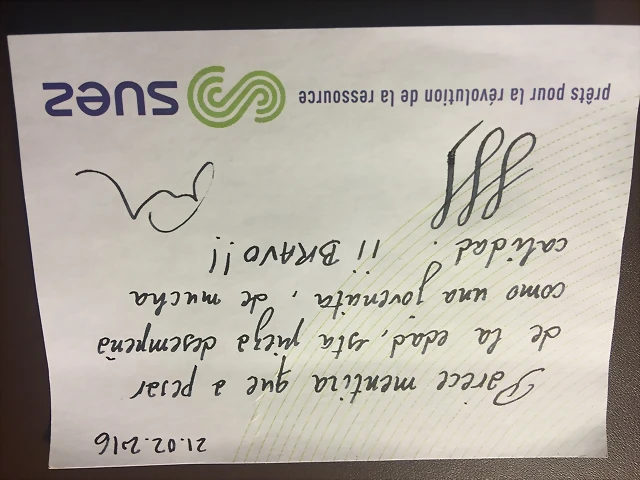 21.02.2016
Parece mentira que a pesar
de la edad, esta pieza desempeña
como una jovenaita, de mucha
calidad. ¡¡ BRAVO!!
prêts pour la révolution de la ressource
suez